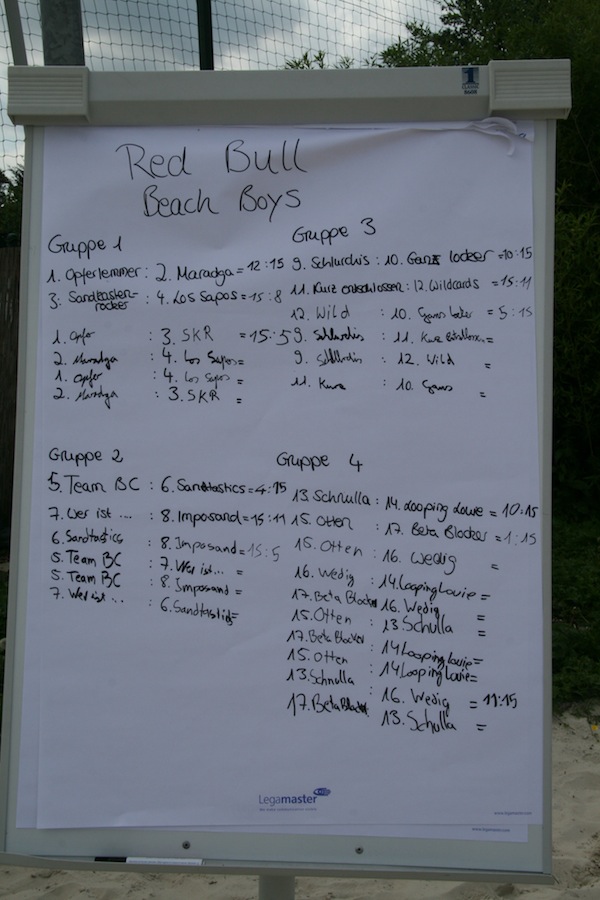 1
CLASSIC
Red Bull
Beach Boys
Gruppe 1
1. Opferlemmer : 2. Maradga = 12:15
3. Sandkasten-rocker : 4. Los Sapos = 15:8
1. Opfer : 3. SKR = 15:5
2. Maradga : 4. Los Sapos =
1. Opfer : 4. Los Sapos =
2. Maradga : 3. SKR =
Gruppe 3
9. Schlurchis : 10. Ganz locker = 10:15
11. Kurz entschlossen : 12. Wildcards = 15:11
12. Wild : 10. Ganz locker = 5:15
9. Schlurchis : 11. Kurz =
9. Schlurchis : 12. Wild =
11. Kurz : 10. Ganz =
Gruppe 2
5. Team BC : 6. Sandtastics = 4:15
7. Wer ist ... : 8. Imposand = 15:11
6. Sandtastics : 8. Imposand = 15:5
5. Team BC : 7. Wer ist... =
5. Team BC : 8. Imposand =
7. Wer ist... : 6. Sandtastics =
Gruppe 4
13. Schnulla : 14. Looping Louie = 10:15
15. Otten : 17. Beta Blocker = 1:15
15. Otten : 16. Wedig =
16. Wedig : 14. Looping Louie =
17. Beta Blocker : 16. Wedig =
15. Otten : 13. Schulla =
17. Beta Blocker : 14 Looping Louie =
15. Otten : 14 Looping Louie =
13. Schnulla : 16. Wedig = 11:15
17. Beta Block : 13. Schulla =
Legamaster
www.legamaster.com
www.legamaster.com